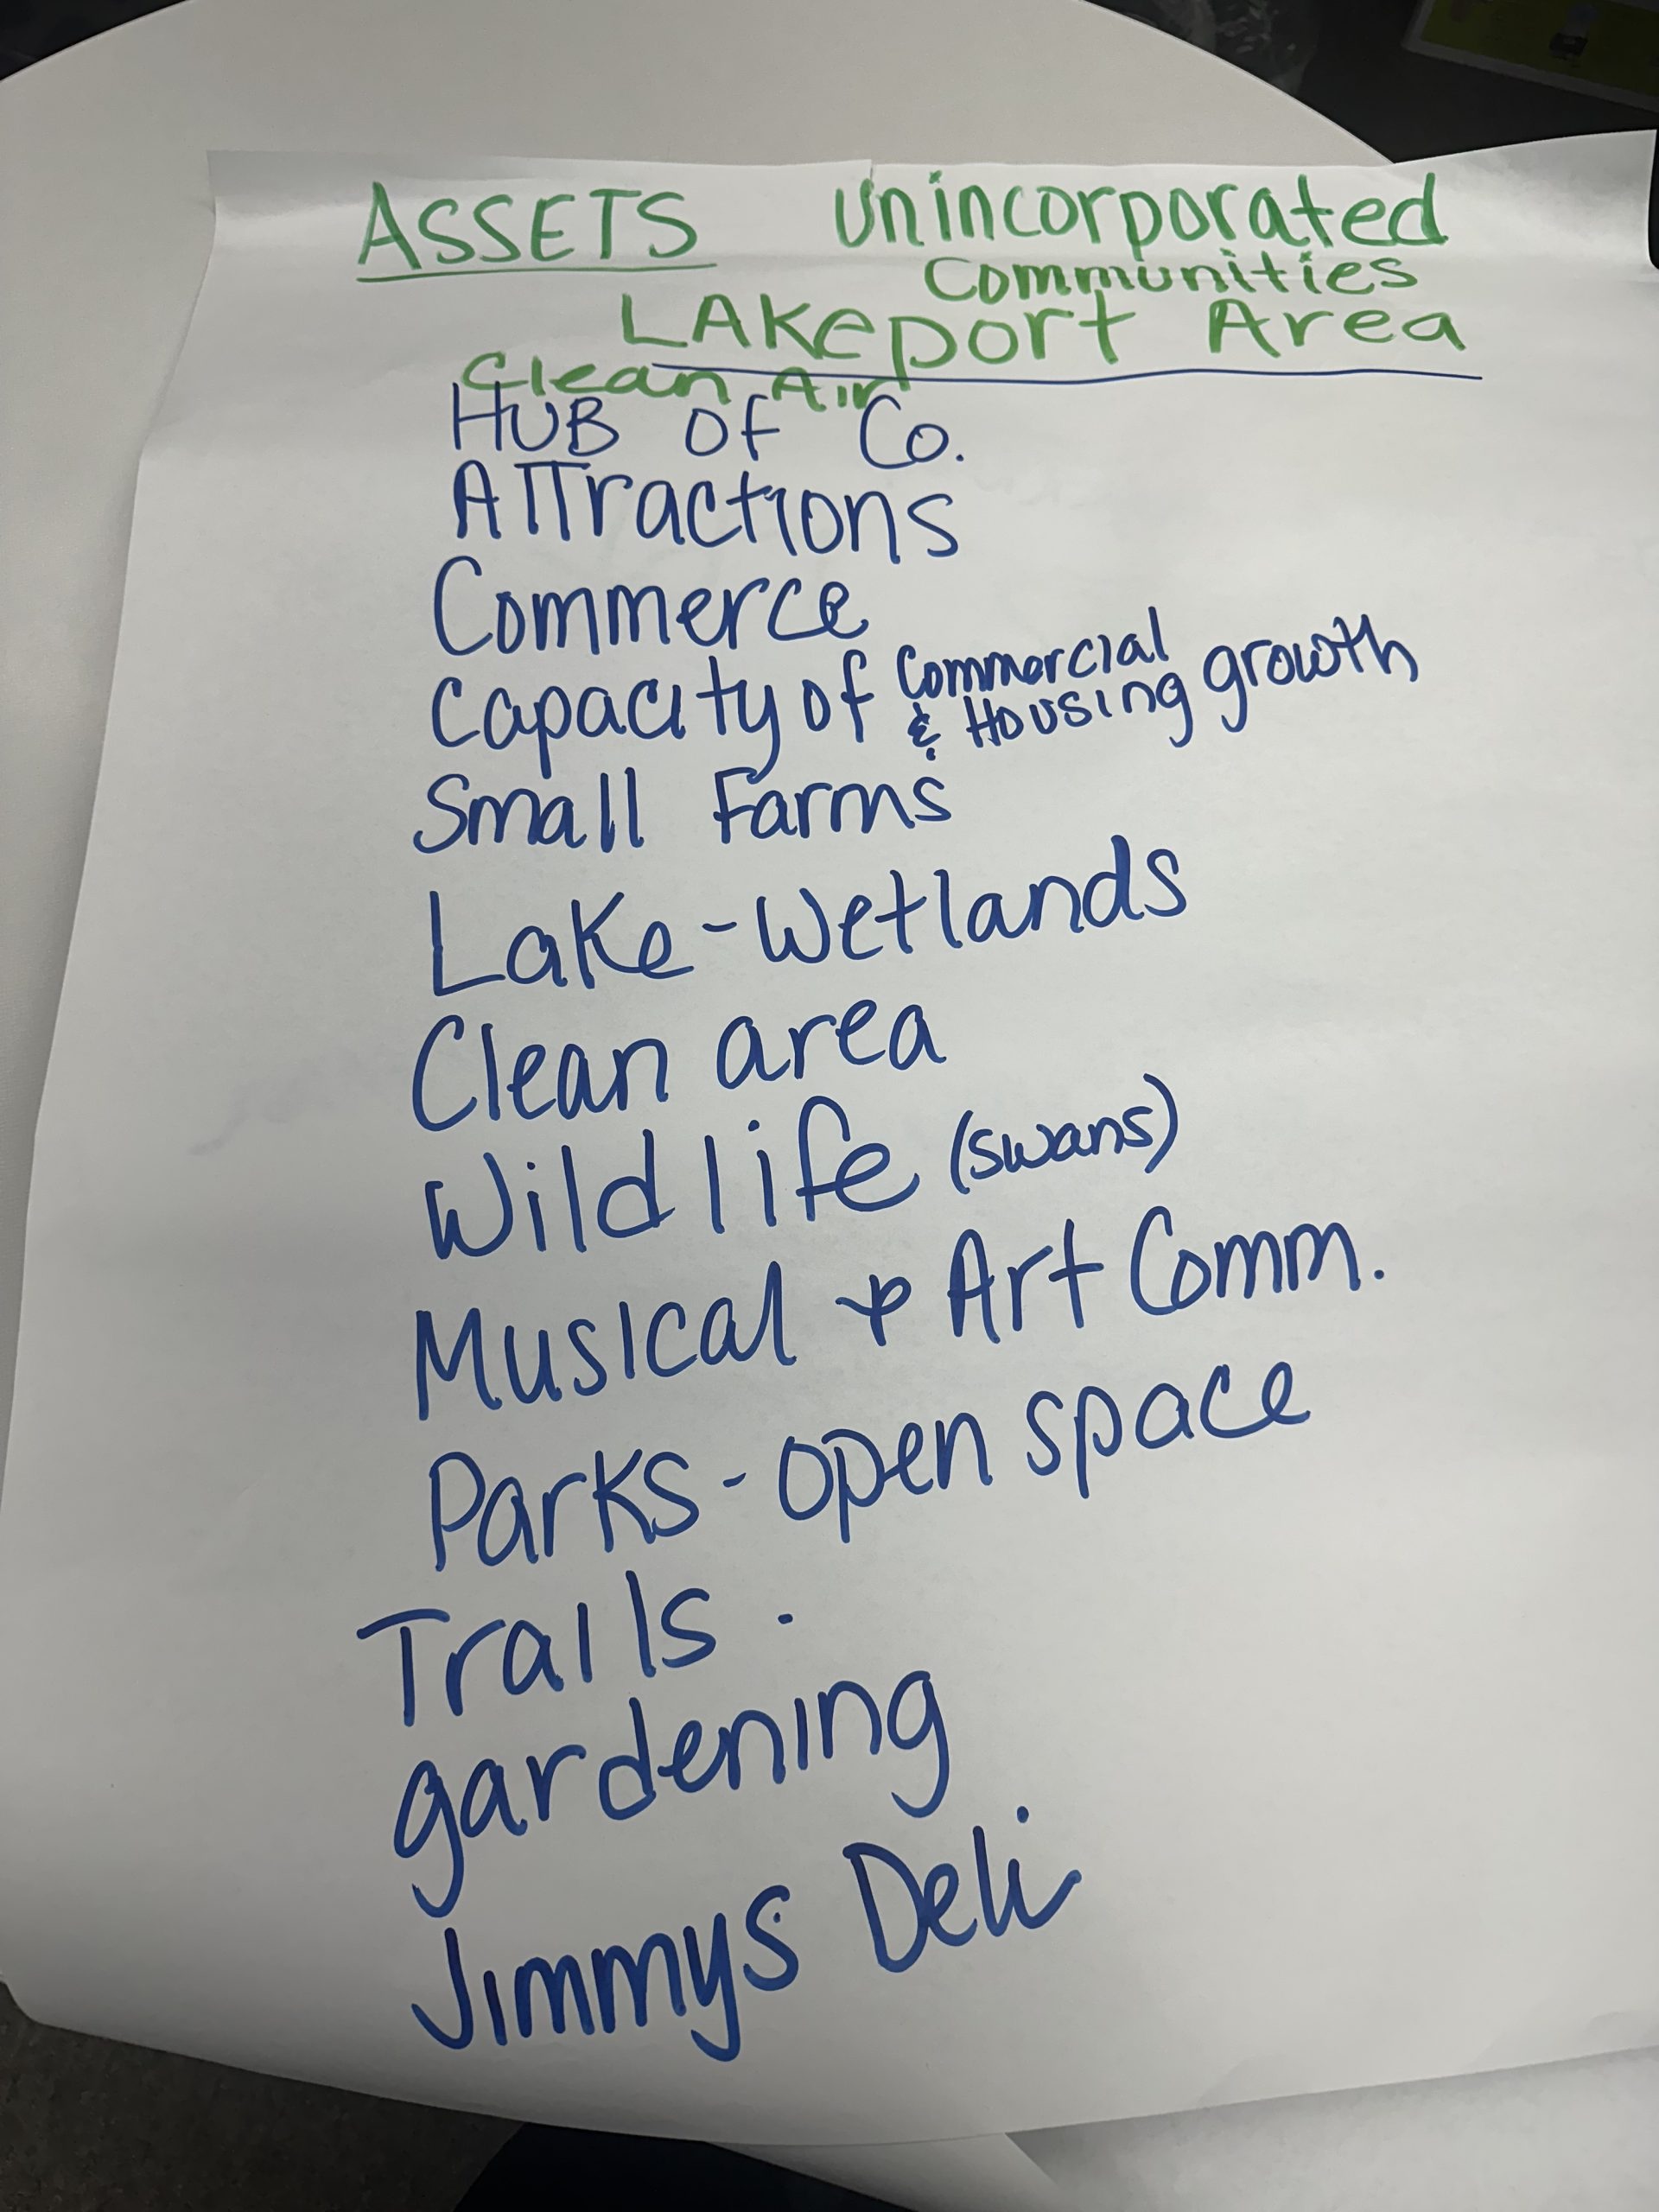 ASSETS unincorporated
Communities
LAKeport Area
Clean Air
HUB OF Co.
ATTractions
Commerce
Capacity of Commercial
& Housing growth
Small Farms
Lake - Wetlands
Clean area
Wildlife (swans)
Musical & Art Comm.
Parks - open space
Trails .
gardening
Jimmys Deli